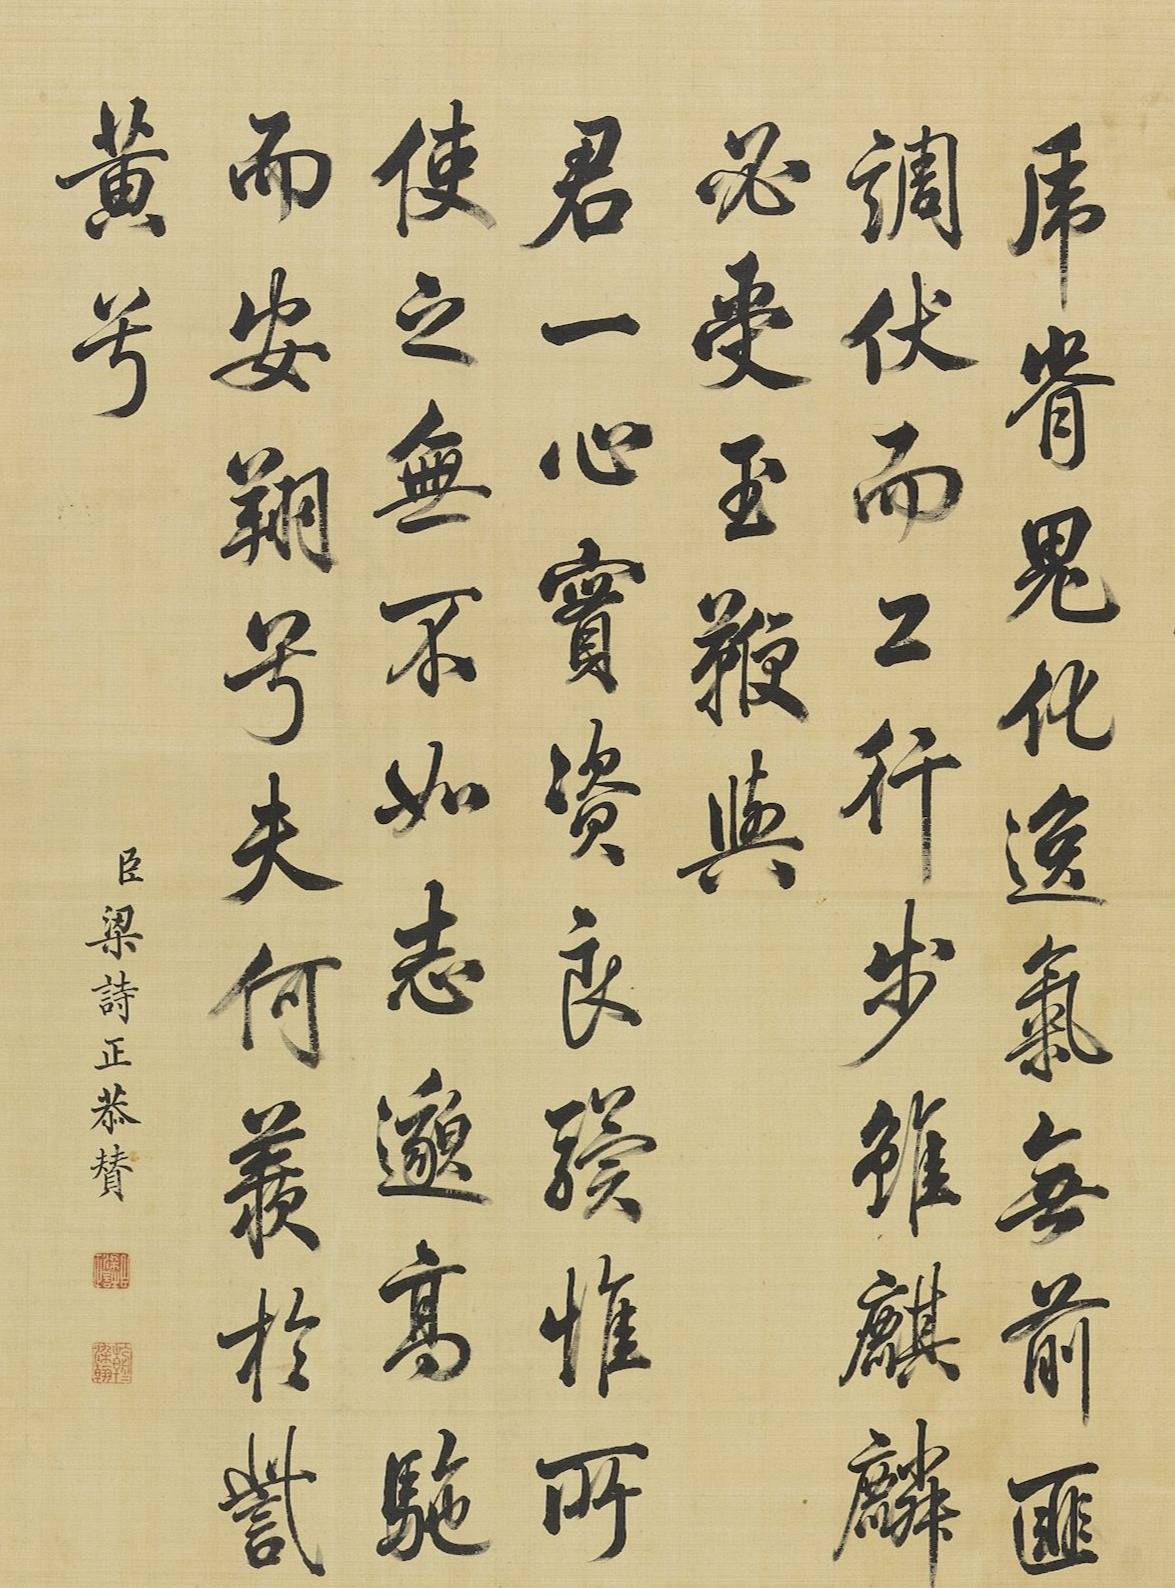 虎脊鬼化逸氣無前匪
調伏而工行步雖麒麟
必受玉鞭與
君一心實資良驥惟所
使之無不如志邈高馳
而安翔兮夫何羨於訾
黃兮
臣梁詩正恭賛